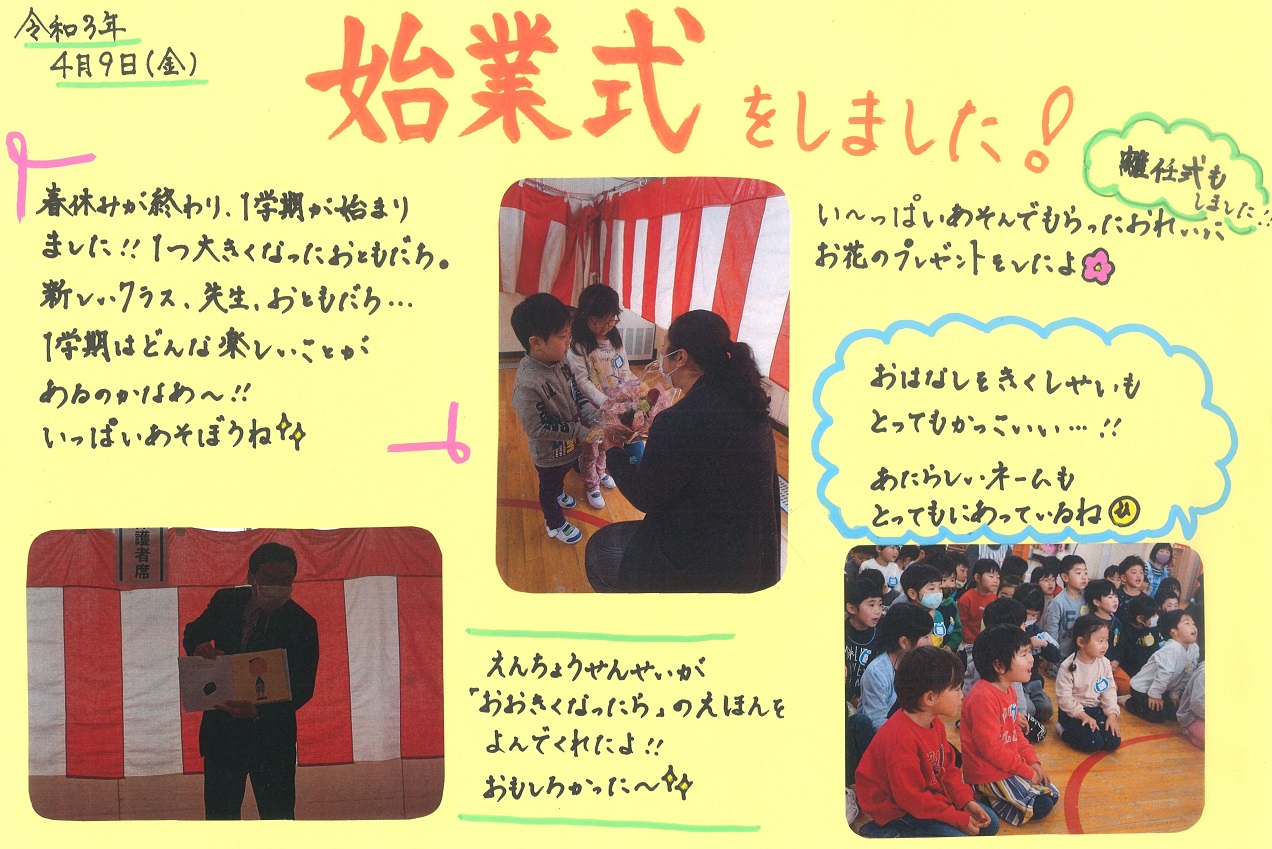 令和3年
4月9日(金)
始業式をしました!
春休みが終わり、1学期が始まり
ました!! 1つ大きくなったおともだち。
新しいクラス、先生、おともだち…
1学期はどんな楽しいことが
あるのかなあ〜!!
いっぱいあそぼうね
離任式も
しました!!
い〜っぱいあそんでもらったおれいに
お花のプレゼントをしたよ
おはなしをきくしせいも
とってもかっこいい…!!
あたらしいネームも
とってもにあっているね
護者席
えんちょうせんせいが
「おおきくなったら」のえほんを
よんでくれたよ!!
おもしろかった〜